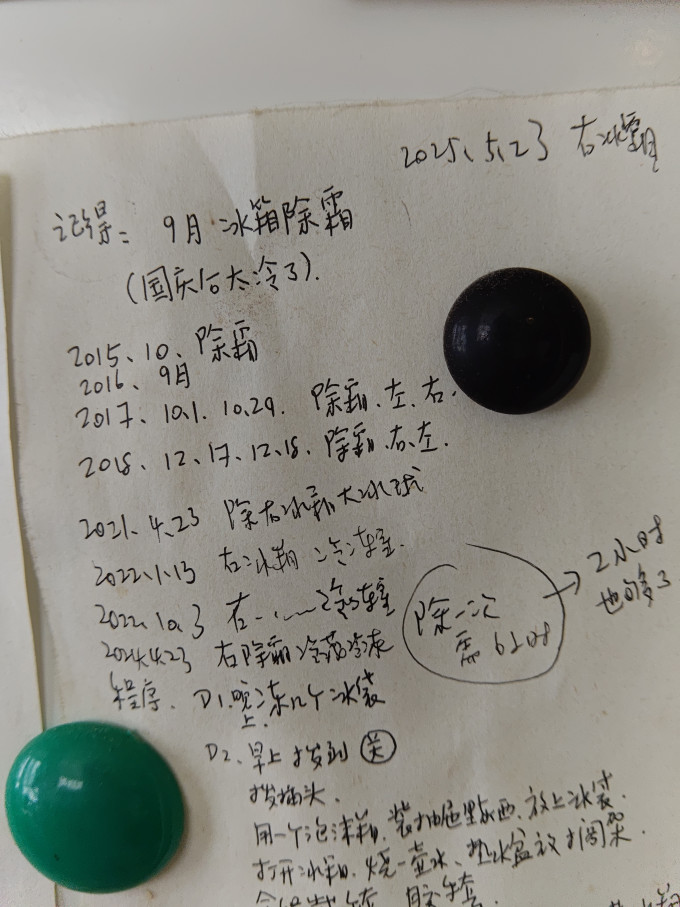 2025.5.23 右冰霜
记得: 9月冰箱除霜
(国庆后太冷了).
2015、10、除霜
2016、9月
2017、10.1. 10.29. 除霜、左、右.
2018、12、17、12、18、除霜、右、左.
2021.4.23 除右冰霜大冰球
2022.1.13 右冰箱 冷冻室.
2022.10.3 右 冷冻室
2024.4.23 右除霜冷藏冷冻
除一次
需 6小时
→ 2小时
也够了
程序. D1.晚上冻几个冰袋
D2、早上 拨到 关
拔插头.
用一个泡沫箱, 装抽屉里东西, 放上冰袋.
打开冰箱, 烧一壶水、热水盆放 搁架.